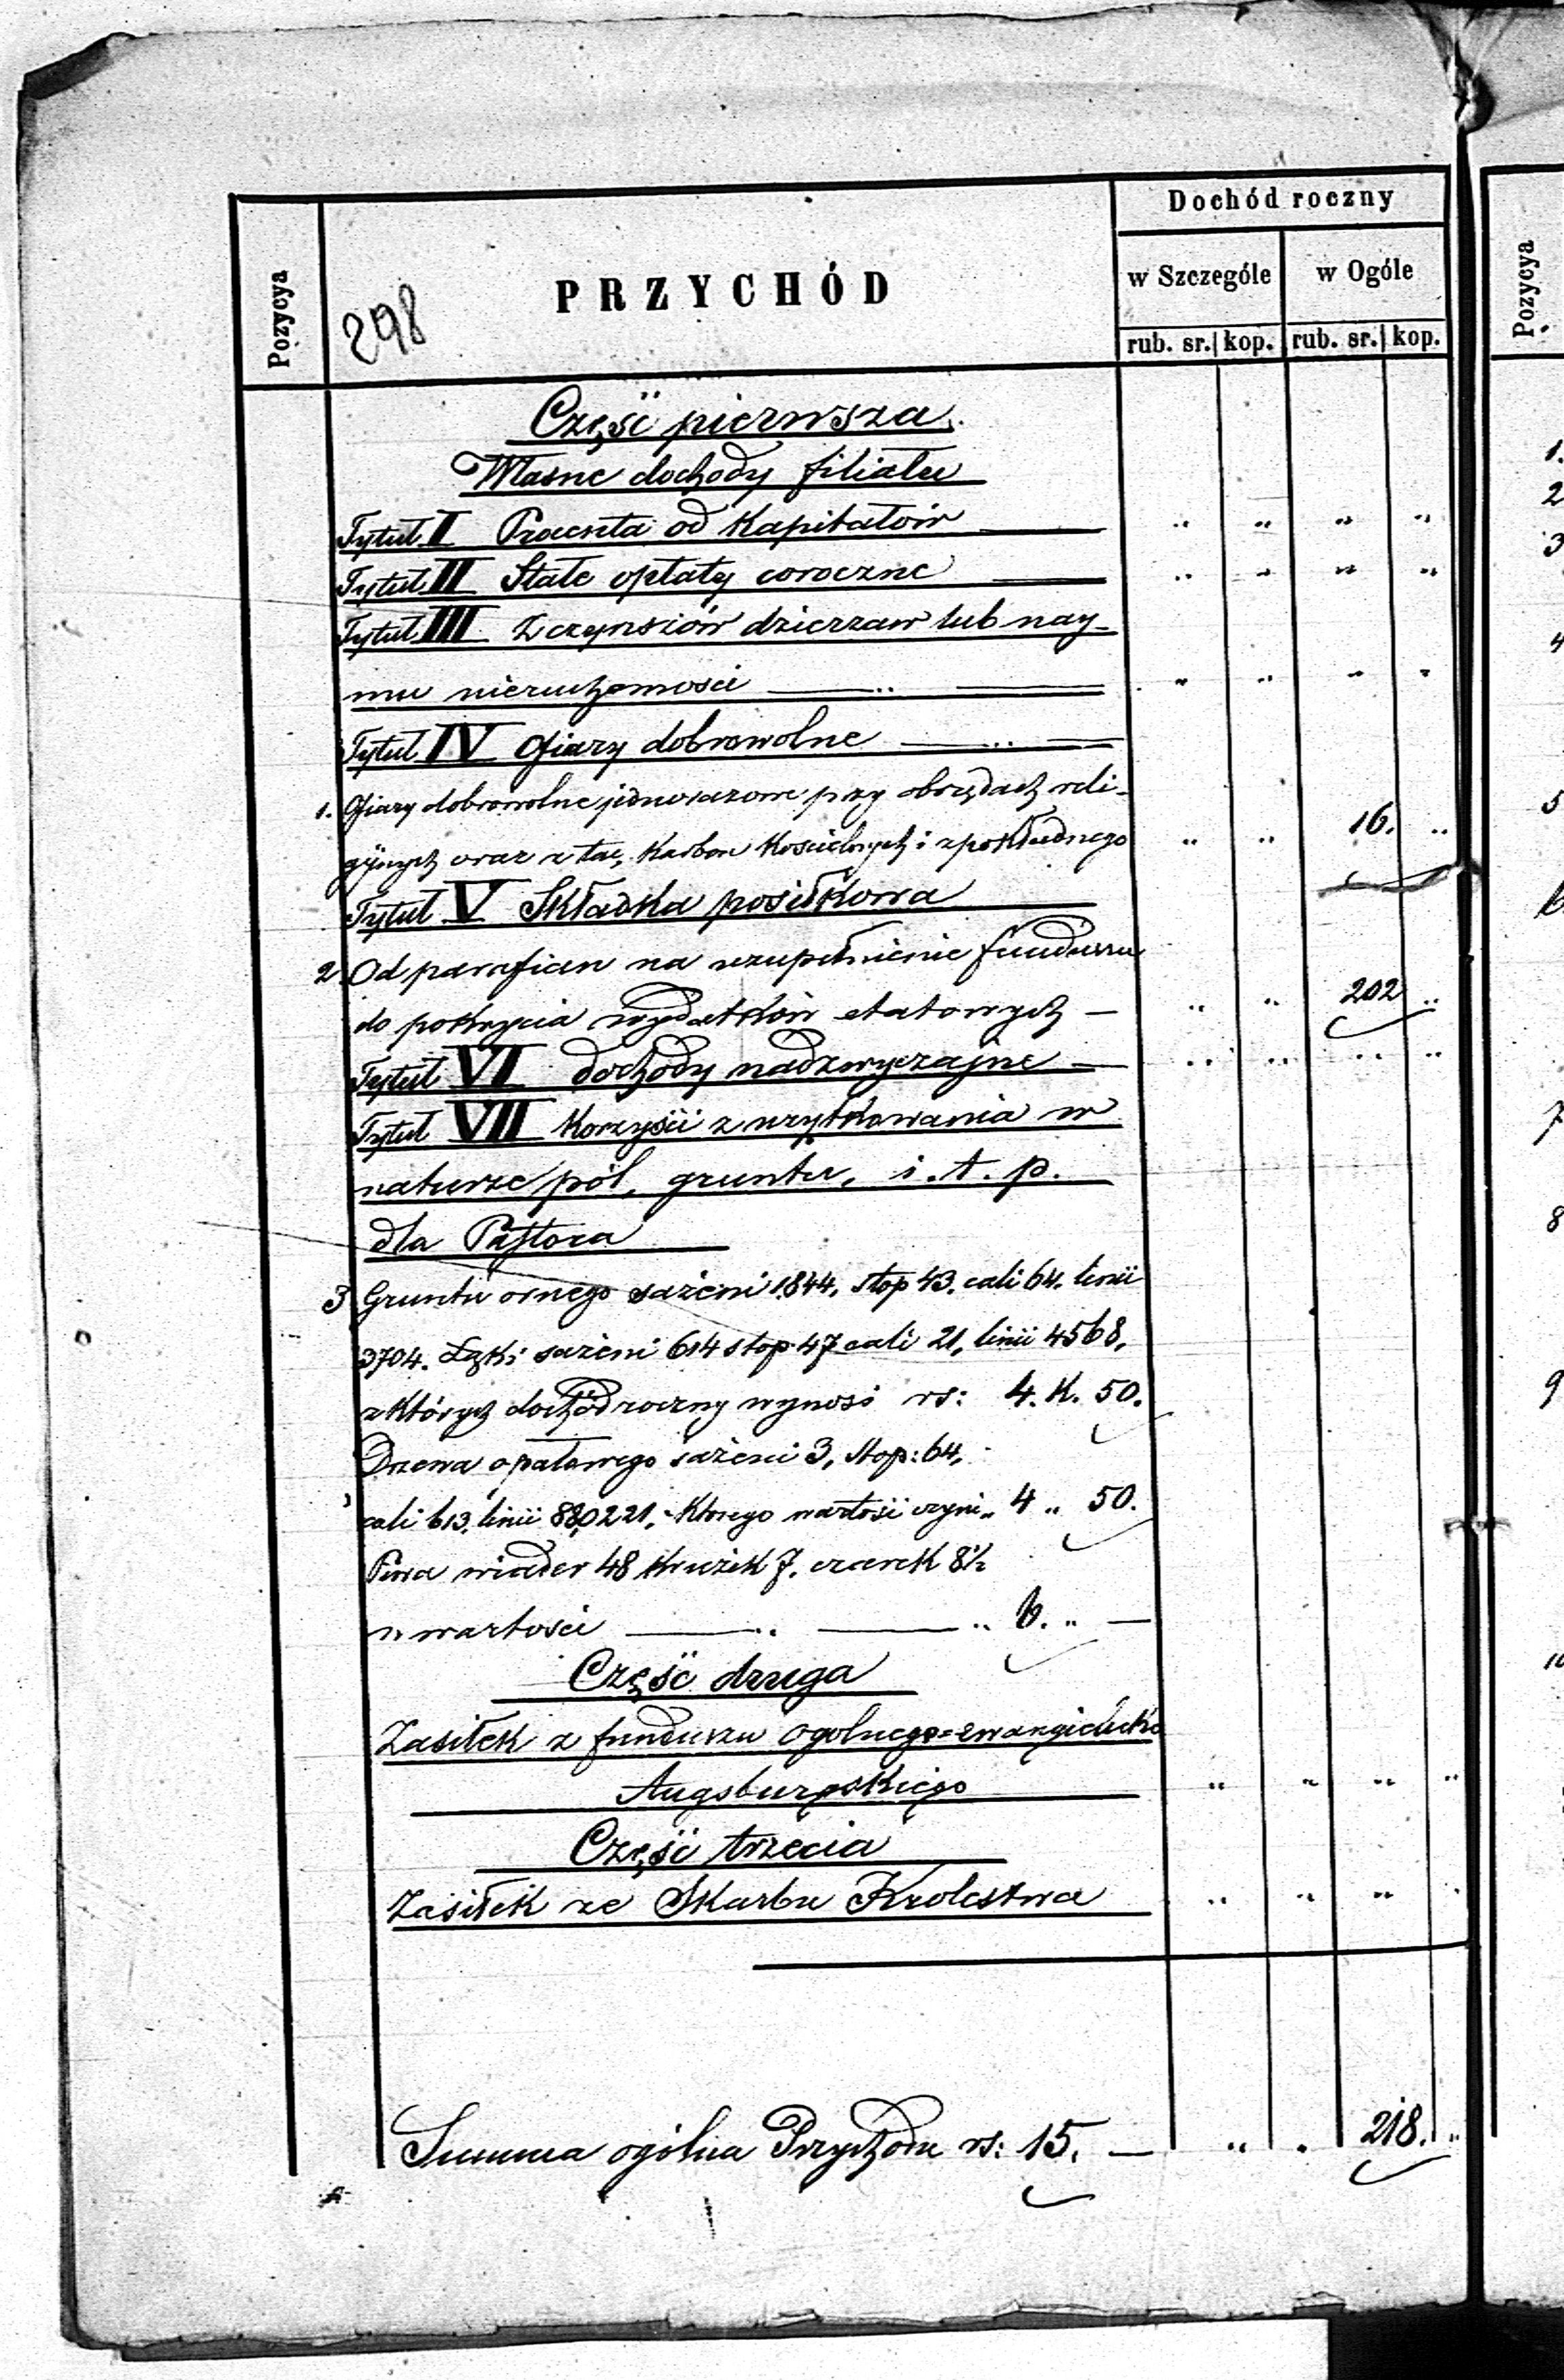 Dochód roczny
Pozycya
298
PRZYCHÓD
w Szczególe
w Ogóle
Pozycya
rub. sr. kop. rub. sr. kop.
Część pierwsza.
Własne dochody filiału
Tytuł I Procenta od Kapitałów — „ „ „ „
Tytuł II Stałe opłaty coroczne — „ „ „ „
Tytuł III Z czynszów dzierzaw lub nay-
mu nieruchomosci — „ — „ „ „ „
Tytuł IV Ofiary dobrowolne — „ —
1. Ofiary dobrowolne jednorazowe przy obrzędach reli-
gijnych oraz z tac, Karbon Kościelnych i z pokładnego „ „ 16. „
Tytuł V Składka posiłkowa
2. Od parafian na uzupełnienie funduszu
do pokrycia wydatków etatowych — „ „ 202 „
Tytuł VI dochody nadzwyczajne — „ „ „ „
Tytuł VII Korzyści z użytkowania w
naturze pól, gruntu, i. t. p.
dla Pastora
3 Gruntu ornego sażeni 1844, stop 43. cali 64. linii
3704. Łąki sażeni 614 stop 47 cali 21, linii 4568,
z których dochód roczny wynosi rs: 4. K. 50.
Drzewa opałowego sażeni 3, stop: 64,
cali 613, linii 880221, którego wartość czyni „ 4 „ 50.
Piwa wiader 48 krużek 7. czarek 8½
w wartości — „ — „ 6. „ —
Część druga
Zasiłek z funduszu ogolnego=ewangielicko
Augsburgskiego „ „ „ „
Część trzecia
Zasiłek ze Skarbu Krolestwa „ „ „ „
Summa ogólna Przychodu rs: 15. — „ . 218. „
1.
2
3
4
5
7
8
9
10